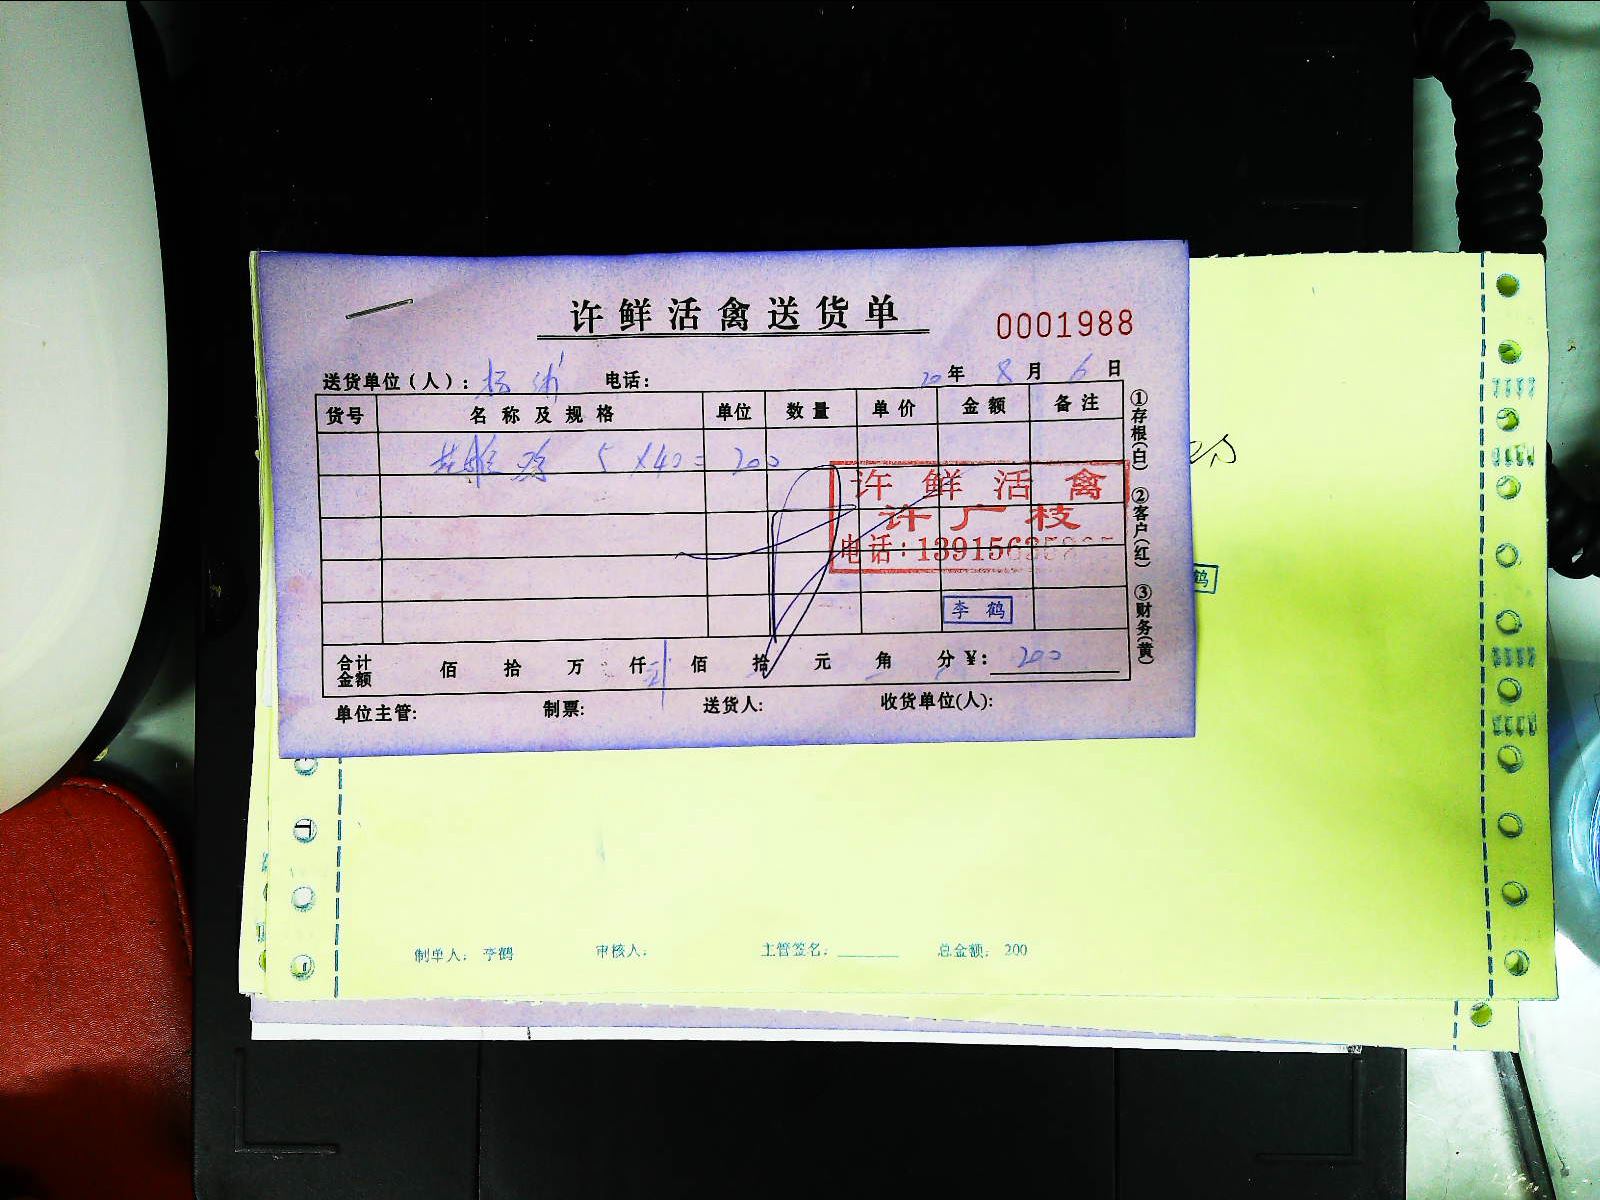 许鲜活禽送货单
0001988
送货单位（人）: 电话: 20年 8月 6日
货号 名称及规格 单位 数量 单价 金额 备注
5×40=200
许鲜活禽
许广枝
电话:139156
李鹤
合计金额 佰 拾 万 仟 佰 拾 元 角 分 ¥: 200
单位主管: 制票: 送货人: 收货单位(人):
①存根(白) ②客户(红) ③财务(黄)
鹤
制单人: 李鹤 审核人: 主管签名: 总金额: 200